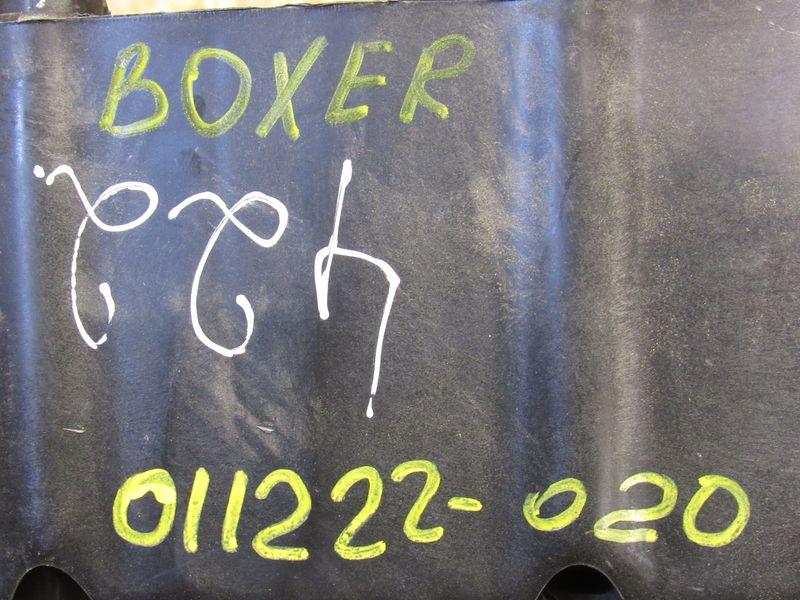 BOXER
422
011222-020